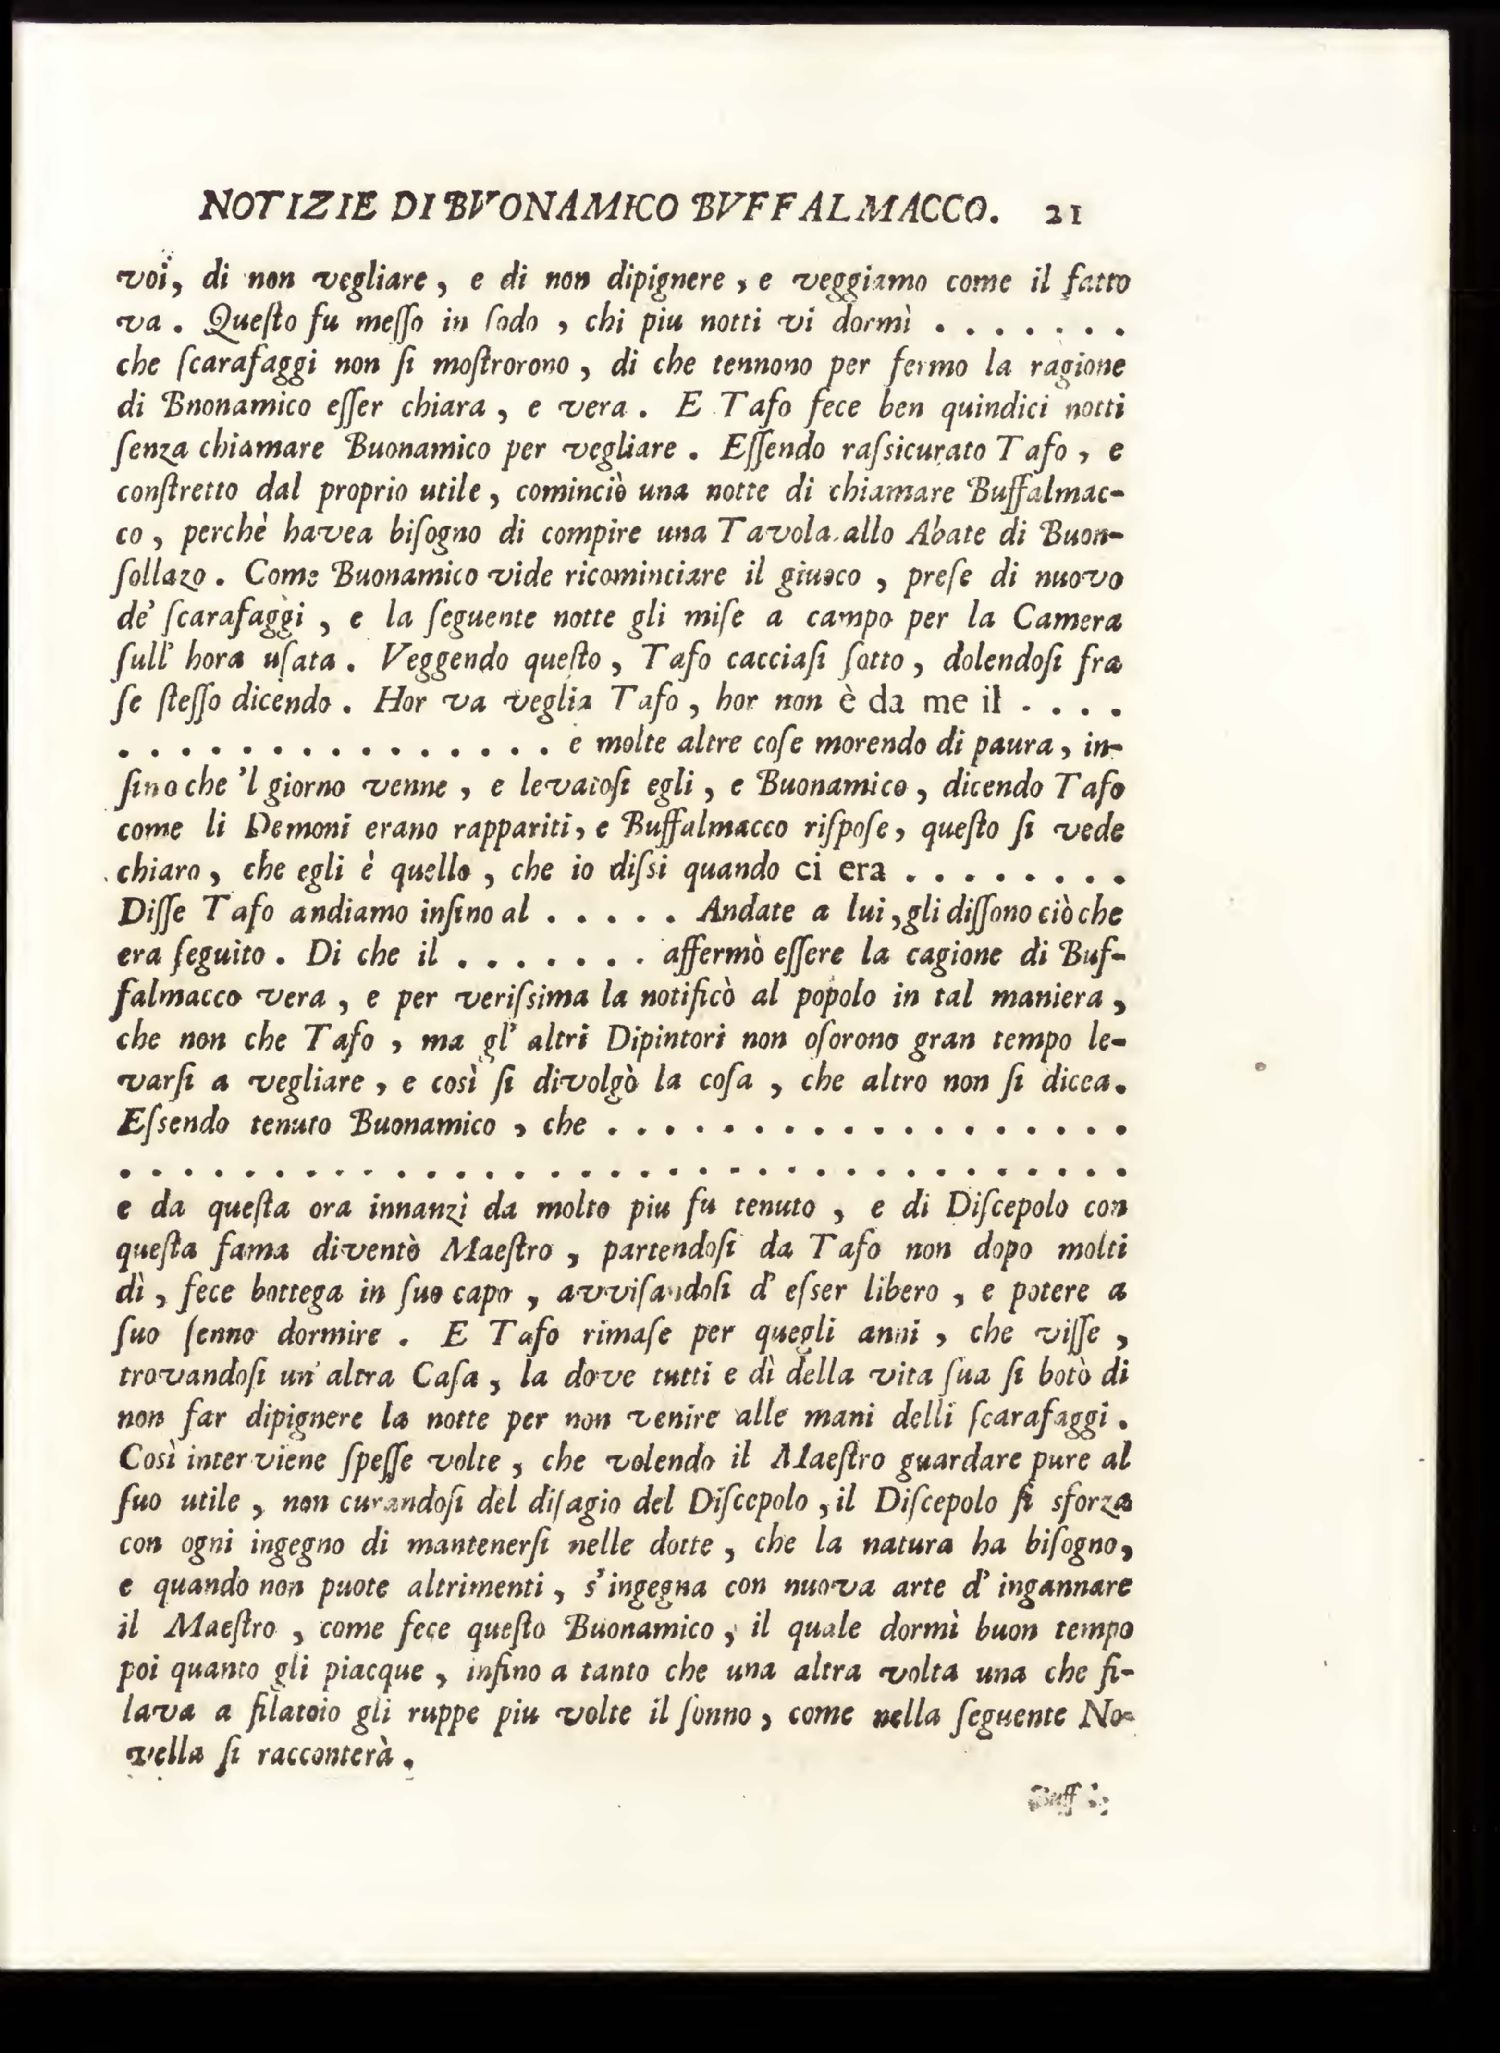 NOTIZIE DI BVONAMICO BVFFALMACCO. 21
voi, di non vegliare, e di non dipignere, e veggiamo come il fatto
va. Queſto fu meſſo in ſodo, chi piu notti vi dormì . . . . . . .
che ſcarafaggi non ſi moſtrorono, di che tennono per fermo la ragione
di Bnonamico eſſer chiara, e vera. E Tafo fece ben quindici notti
ſenza chiamare Buonamico per vegliare. Eſſendo raſsicurato Tafo, e
conſtretto dal proprio utile, cominciò una notte di chiamare Buffalmac-
co, perchè havea biſogno di compire una Tavola allo Abate di Buon-
ſollazo. Come Buonamico vide ricominciare il giuoco, preſe di nuovo
de' ſcarafaggi, e la ſeguente notte gli miſe a campo per la Camera
ſull' hora uſata. Veggendo queſto, Tafo cacciaſi ſotto, dolendoſi fra
ſe ſteſſo dicendo. Hor va veglia Tafo, hor non è da me il . . . .
. . . . . . . . . . . . . . . e molte altre coſe morendo di paura, in-
ſino che 'l giorno venne, e levatoſi egli, e Buonamico, dicendo Tafo
come li Demoni erano rappariti, e Buffalmacco riſpoſe, queſto ſi vede
chiaro, che egli è quello, che io diſsi quando ci era . . . . . . . .
Diſſe Tafo andiamo inſino al . . . . . Andate a lui, gli diſſono ciò che
era ſeguito. Di che il . . . . . . . affermò eſſere la cagione di Buf-
falmacco vera, e per veriſsima la notificò al popolo in tal maniera,
che non che Tafo, ma gl' altri Dipintori non oſorono gran tempo le-
varſi a vegliare, e così ſi divolgò la coſa, che altro non ſi dicea.
Eſsendo tenuto Buonamico, che . . . . . . . . . . . . . . . . . .
. . . . . . . . . . . . . . . . . . . . . . . . . . . . . . . . . .
e da queſta ora innanzi da molto piu fu tenuto, e di Diſcepolo con
queſta fama diventò Maeſtro, partendoſi da Tafo non dopo molti
dì, fece bottega in ſuo capo, avviſandoſi d' eſser libero, e potere a
ſuo ſenno dormire. E Tafo rimaſe per quegli anni, che viſſe,
trovandoſi un' altra Caſa, la dove tutti e dì della vita ſua ſi botò di
non far dipignere la notte per non venire alle mani delli ſcarafaggi.
Così interviene ſpeſſe volte, che volendo il Maeſtro guardare pure al
ſuo utile, non curandoſi del diſagio del Diſcepolo, il Diſcepolo ſi sforza
con ogni ingegno di mantenerſi nelle dotte, che la natura ha biſogno,
e quando non puote altrimenti, s'ingegna con nuova arte d' ingannare
il Maeſtro, come fece queſto Buonamico, il quale dormì buon tempo
poi quanto gli piacque, inſino a tanto che una altra volta una che fi-
lava a filatoio gli ruppe piu volte il ſonno, come nella ſeguente No-
vella ſi racconterà.